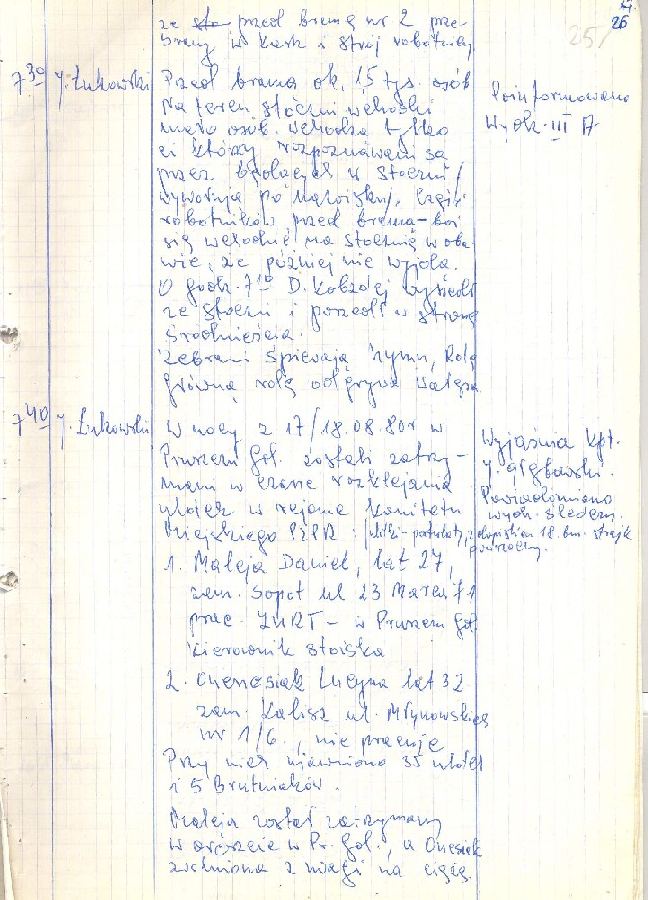 26
25/
ze sto przed bramą nr 2 prze-
brany w kask i strój robotniky
7 30 J. Łukowski
Przed bramą ok. 15 tys. osób
Na teren stoczni wchodzi
mało osób. wchodzą tylko
ci którzy rozpoznawani są
przez będących w stoczni/
wywołują po nazwisku/. Część
robotników przed bramą - boi
się wchodzić na stocznię w oba-
wie, że później nie wyjdą.
O godz. 7 10 D. Kobzdej wyszedł
ze stoczni i poszedł w stronę
śródmieścia.
Zebrani śpiewają hymn, Rotę
główną rolę odgrywa Wałęsa
Poinformowano
Wydz. III A
7 40 J. Łukowski
W nocy z 17/18.08.80r w
Pruszczu Gd. zostali zatrzy-
mani w czasie rozklejania
ulotek w rejonie Komitetu
Miejskiego PZPR:
z dopiskiem 18 bm. strajk
1. Mateja Daniel, lat 27,
zam. Sopot ul 23 Marca
prac. ZURT - w Pruszczu Gd
kierownik stoiska
2. Lucyna lat 32
zam. Kalisz ul. Młynowskiej
nr 1/6., nie pracuje
Przy nich ujawniono 35 ulotek
i 5 Bratniaków.
Mateja został zatrzymany
w areszcie w Pr. Gd., a
zwolniona z uwagi na ciążę.
Wyjaśnia kpt.
J.
Powiadomiono
wydz. śledczy.